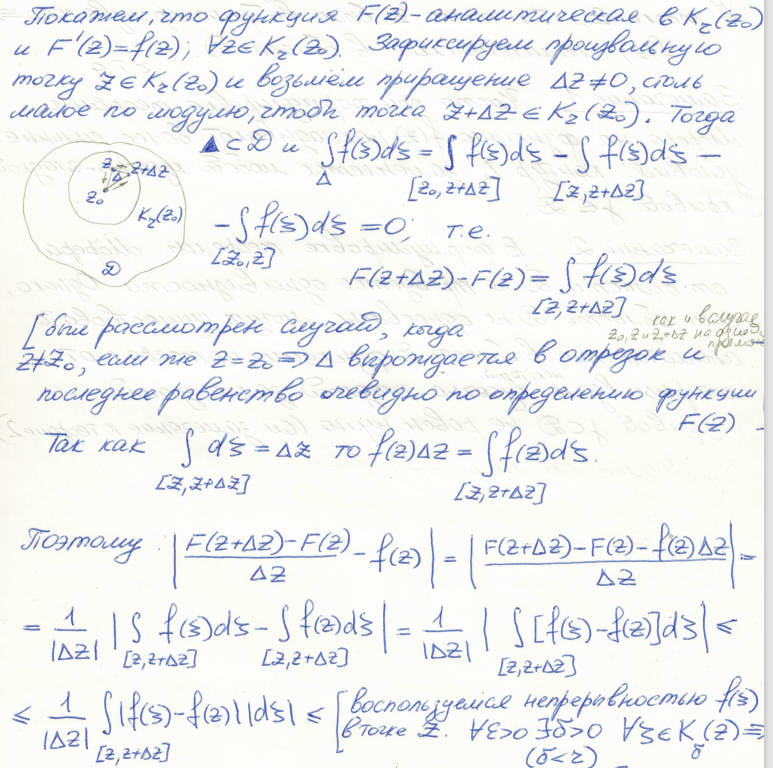 Покажем, что функция F(z)-аналитическая в K_r(z₀)
и F'(z)=f(z); ∀z∈K_r(z₀). Зафиксируем произвольную
точку z∈K_r(z₀) и возьмём приращение Δz≠0, столь
малое по модулю, чтобы точка z+Δz∈K_r(z₀). Тогда
▲⊂D и ∫_Δ f(ξ)dξ = ∫_[z₀,z+Δz] f(ξ)dξ − ∫_[z,z+Δz] f(ξ)dξ −
z z+Δz
Δ
z₀
K_r(z₀)
D
− ∫_[z₀,z] f(ξ)dξ = 0; т.е.
F(z+Δz)−F(z) = ∫_[z,z+Δz] f(ξ)dξ
[был рассмотрен случай, когда
как и в случае
z₀, z и z+Δz на одной
прямой
z≠z₀, если же z=z₀ ⇒ Δ вырождается в отрезок и
последнее равенство очевидно по определению функции
F(z) −
Так как ∫_[z,z+Δz] dξ = Δz то f(z)Δz = ∫_[z,z+Δz] f(z)dξ.
Поэтому |(F(z+Δz)−F(z))/Δz − f(z)| = |(F(z+Δz)−F(z)−f(z)Δz)/Δz| =
= 1/|Δz| |∫_[z,z+Δz] f(ξ)dξ − ∫_[z,z+Δz] f(z)dξ| = 1/|Δz| |∫_[z,z+Δz] [f(ξ)−f(z)]dξ| ≤
≤ 1/|Δz| ∫_[z,z+Δz] |f(ξ)−f(z)||dξ| ≤ [воспользуемся непрерывностью f(ξ)
в точке z. ∀ε>0 ∃δ>0 ∀ξ∈K_δ(z) ⇒
(δ<r)